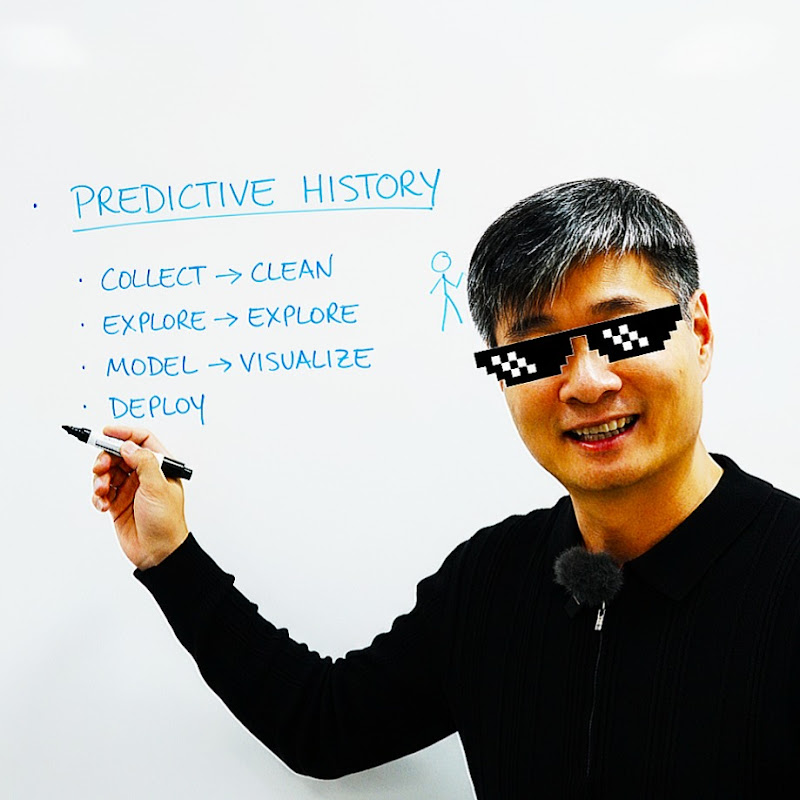 · PREDICTIVE HISTORY
· COLLECT → CLEAN
· EXPLORE → EXPLORE
· MODEL → VISUALIZE
· DEPLOY